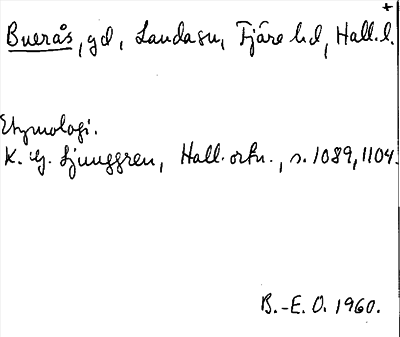 +
Buerås, gd, Landa sn, Fjäre hd, Hall. l.
Etymologi.
K. G. Ljunggren, Hall. ortn., s. 1089, 1104.
B.-E. O. 1960.